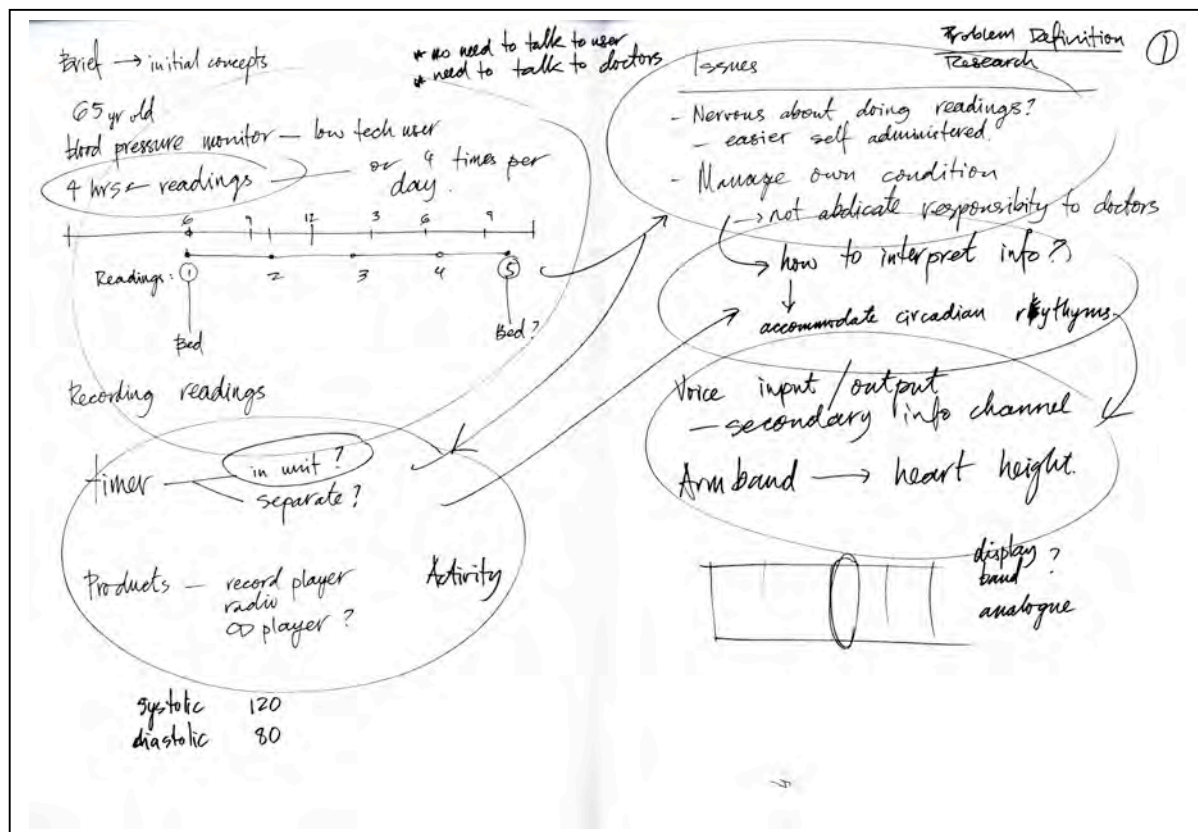 Brief → initial concepts
* no need to talk to user
* need to talk to doctors
65 yr old
blood pressure monitor — low tech user
4 hrs ← readings — or 4 times per
day.
6 9 12 3 6 9
Readings: 1 2 3 4 5
Bed Bed?
Recording readings
timer — in unit?
separate?
Products — record player
radio
CD player?
Activity
systolic 120
diastolic 80
Problem Definition 1
Research
Issues
- Nervous about doing readings?
- easier self administered.
- Manage own condition
→ not abdicate responsibity to doctors
→ how to interpret info?
↓
accommodate circadian rythyms
Voice input/output
— secondary info channel
Arm band → heart height.
display
band ?
analogue